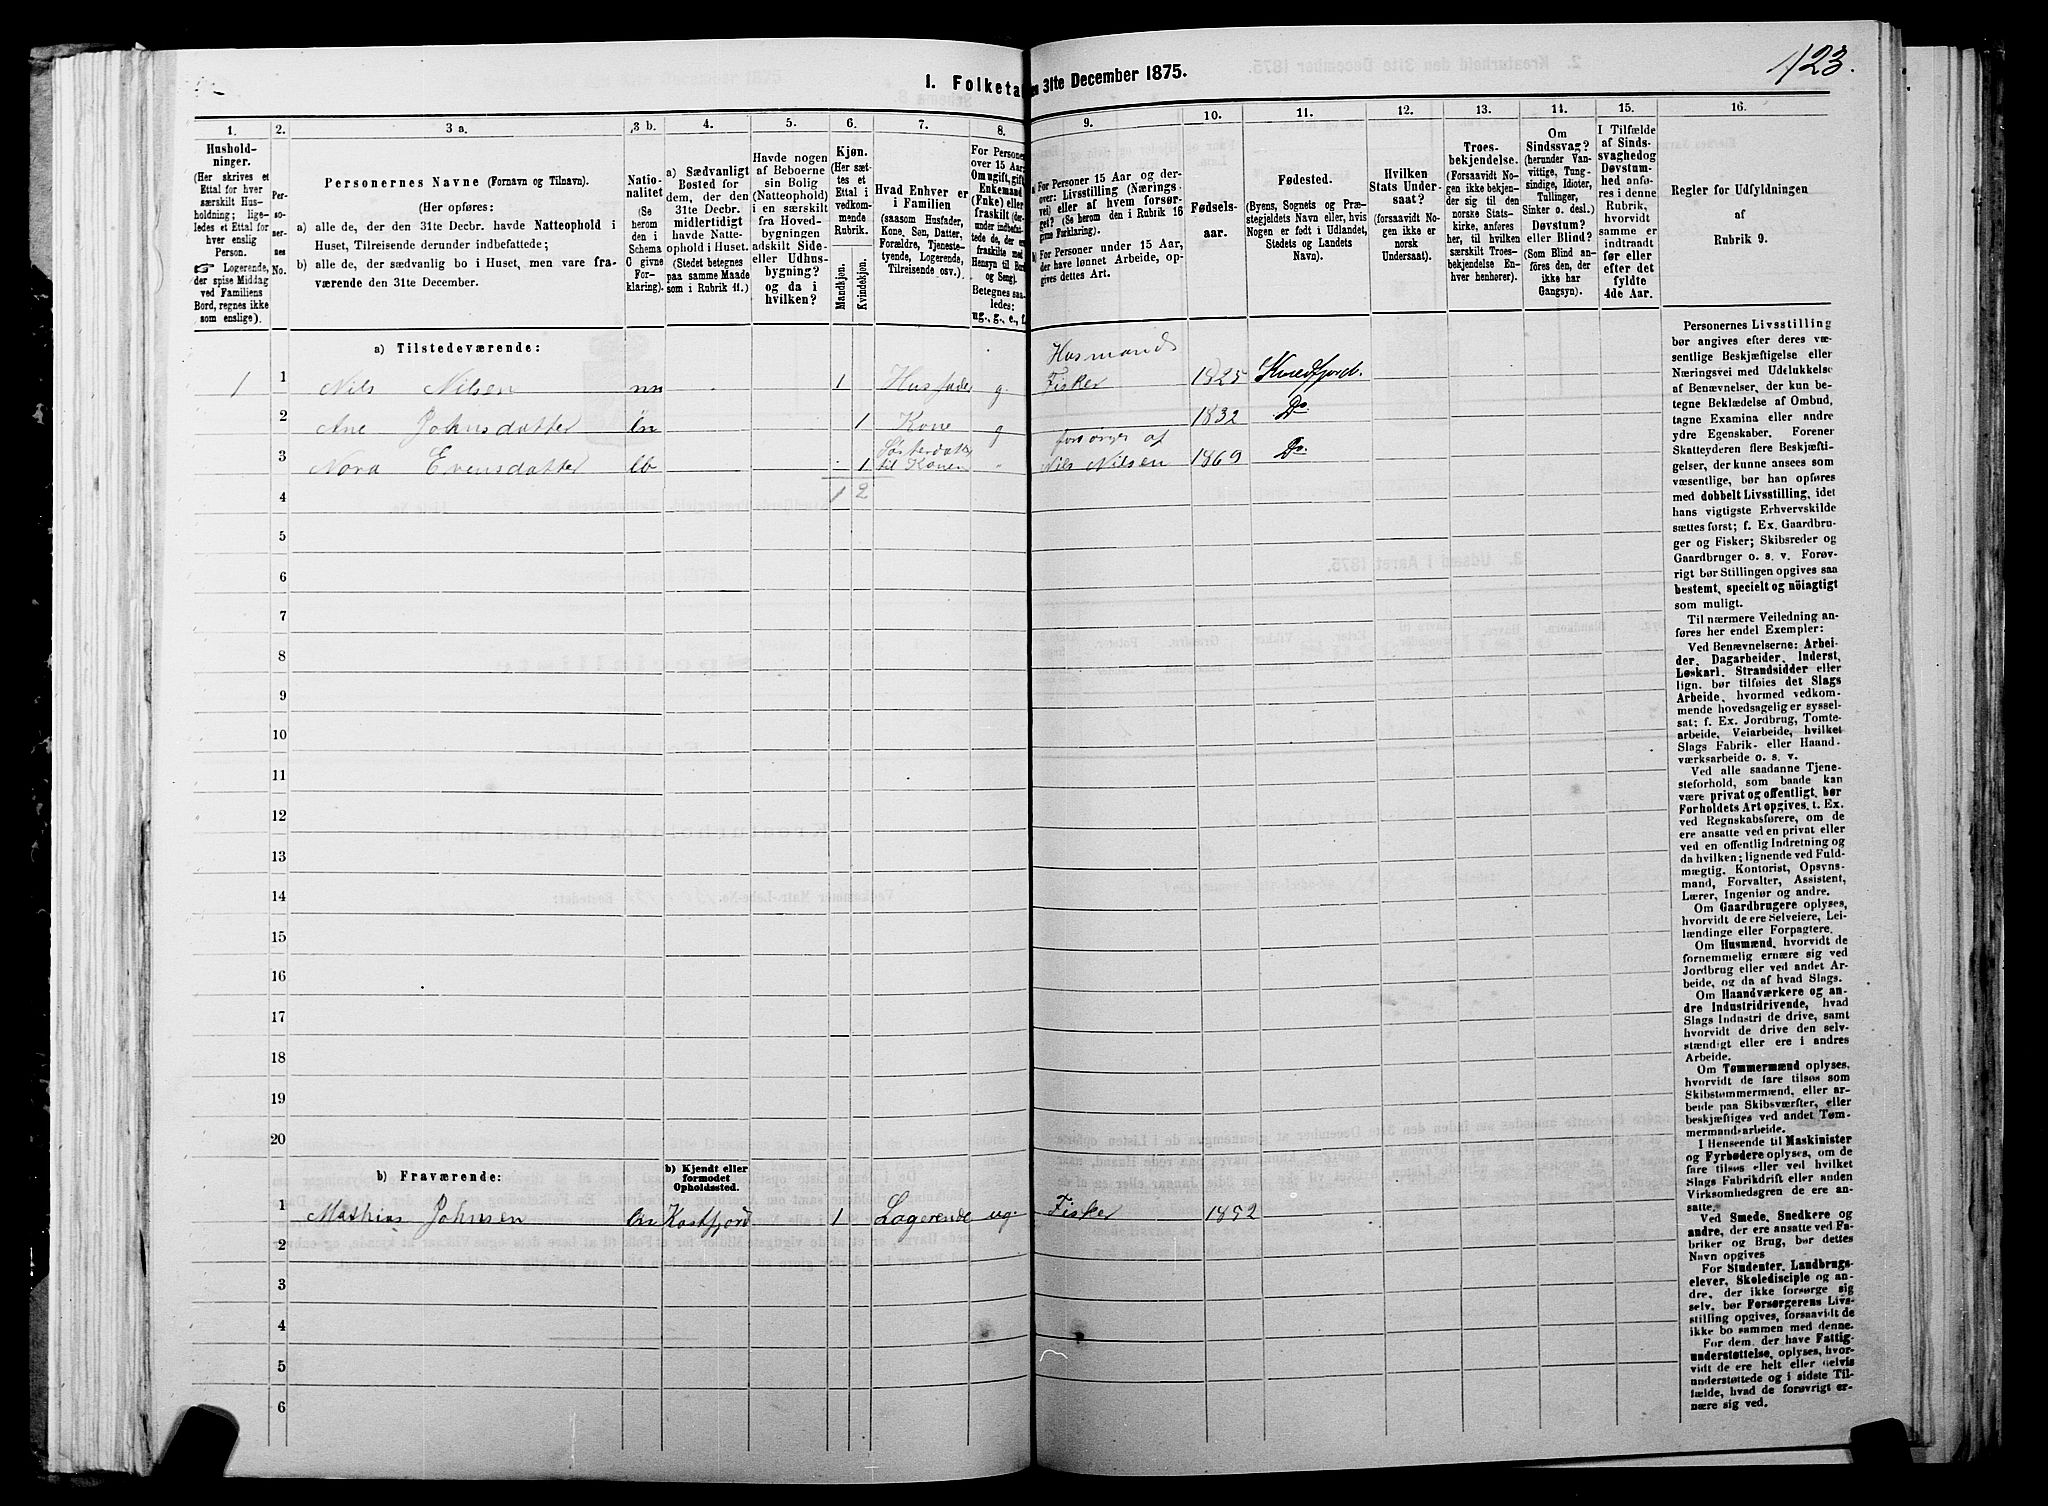 123.
I. Folketa
en 31te December 1875.
1.
2.
3 a.
3 b.
4.
5.
6.
7.
8.
9.
10.
11.
12.
13.
14.
15.
16.
Hushold-
ninger.
(Her skrives et
Ettal for hver
særskilt Hus-
holdning; lige-
ledes et Ettal for
hver enslig
Person.
☞ Logerende,
der spise Middag
ved Familiens
Bord, regnes ikke
som enslige).
Per-
so-
ner-
nes
No.
Personernes Navne (Fornavn og Tilnavn).
(Her opføres:
a) alle de, der den 31te Decbr. havde Natteophold i
Huset, Tilreisende derunder indbefattede;
b) alle de, der sædvanlig bo i Huset, men vare fra-
værende den 31te December.
Natio-
nalitet
(Se
herom
den i
Schema
C givne
For-
klaring).
a) Sædvanligt
Bosted for
dem, der den
31te Decbr.
midlertidigt
havde Natte-
ophold i Huset.
(Stedet betegnes
paa samme Maade
som i Rubrik 11.)
Havde nogen
af Beboerne
sin Bolig
(Natteophold)
i en særskilt
fra Hoved-
bygningen
adskilt Side-
eller Udhus-
bygning?
og da i
hvilken?
Kjøn.
(Her sæt-
tes et
Ettal i
vedkom-
mende
Rubrik.
Mandkjøn.
Kvindekjøn.
Hvad Enhver er
i Familien
(saasom Husfader,
Kone, Søn, Datter,
Forældre, Tjeneste-
tyende, Logerende,
Tilreisende osv.)
For Personer
over 15 Aar:
Om ugift, gift,
Enkemand
(Enke) eller
fraskilt (der-
under indbefat-
tede de, der ere
fraskilte med
Hensyn til Bord
og Seng).
Betegnes saa-
ledes:
ug., g., e., f.
a For Personer 15 Aar og der-
over: Livsstilling (Nærings-
vei) eller af hvem forsør-
get? (Se herom den i Rubrik 16
givne Forklaring).
b) For Personer under 15 Aar,
der have lønnet Arbeide, op-
gives dettes Art.
Fødsels-
aar.
Fødested.
(Byens, Sognets og Præ-
stegjeldets Navn eller, hvis
Nogen er født i Udlandet,
Stedets og Landets
Navn).
Hvilken
Stats Under-
saat?
(forsaavidt No-
gen ikke er
norsk
Undersaat).
Troes-
bekjendelse.
(Forsaavidt No-
gen ikke bekjen-
der sig til den
norske Stats-
kirke, anføres
her, til hvilken
særskilt Troes-
bekjendelse En-
hver henhører).
Om
Sindssvag?
(herunder Van-
vittige, Tung-
sindige, Idioter,
Tullinger,
Sinker o. desl.)
Døvstum?
eller Blind?
(Som Blind an-
føres den, der
ikke har
Gangsyn).
I Tilfælde
af Sinds-
svaghedog
Døvstum-
hed anfø-
res i denne
Rubrik,
hvorvidt
samme er
indtraadt
før eller
efter det
fyldte
4de Aar.
Regler for Udfyldningen
af
Rubrik 9.
a) Tilstedeværende:
Husmand
1 1 Nils Nilsen nn 1 Husfader g. Fisker 1825 Kvedfjord.
2 Ane Johnsdatter ln 1 Kone g 1832 Do.
Søsterdatter forsørges af
3 Nora Evensdatter lb 1 til Konen " Nils Nilsen 1869 Do.
4 1 2
5
6
7
8
9
10
11
12
13
14
15
16
17
18
19
20
b) Fraværende:
b) Kjendt eller
formodet
Opholdssted.
1 Mathias Johnsen ln Kastfjord 1 Logerende ug. Fisker 1852
2
3
4
5
6
Personernes Livsstilling
bør angives efter deres væ-
sentlige Beskjæftigelse eller
Næringsvei med Udelukkelse
af Benævnelser, der kun be-
tegne Beklædelse af Ombud,
tagne Examina eller andre
ydre Egenskaber. Forener
Skatteyderen flere Beskjæfti-
gelser, der kunne ansees som
væsentlige, bør han opføres
med dobbelt Livsstilling, idet
hans vigtigste Erhvervskilde
sættes først; f. Ex. Gaardbru-
ger og Fisker; Skibsreder og
Gaardbruger o. s. v. Forøv-
rigt bør Stillingen opgives saa
bestemt, specielt og nöiagtigt
som muligt.
Til nærmere Veiledning an-
føres her endel Exempler:
Ved Benævnelserne: Arbei-
der, Dagarbeider, Inderst,
Løskarl, Strandsidder eller
lign. bør tilføies det Slags
Arbeide, hvormed vedkom-
mende hovedsagelig er syssel-
sat; f. Ex. Jordbrug, Tomte-
arbeide, Veiarbeide, hvilket
Slags Fabrik- eller Haand-
værksarbeide o. s. v.
Ved alle saadanne Tjene-
steforhold, som baade kan
være privat og offentligt, bør
Forholdets Art opgives, t. Ex.
ved Regnskabsførere, om de
ere ansatte ved en privat eller
ved en offentlig Indretning og
da hvilken; lignende ved Fuld-
mægtig, Kontorist, Opsyns-
mand, Forvalter, Assistent,
Lærer, Ingeniør og andre.
Om Gaardbrugere oplyses,
hvorvidt de ere Selveiere, Lei-
lændinge eller Forpagtere.
Om Husmænd, hvorvidt de
fornemmelig ernære sig ved
Jordbrug eller ved andet Ar-
beide, og da af hvad Slags.
Om Haandværkere og an-
dre Industridrivende, hvad
Slags Industri de drive, samt
hvorvidt de drive den selv-
stændigt eller ere i andres
Arbeide.
Om Tømmermænd oplyses,
hvorvidt de fare tilsøs som
Skibstømmermænd, eller ar-
beide paa Skibsværfter, eller
beskjæftiges ved andet Tøm-
mermandsarbeide.
I Henseende til Maskinister
og Fyrbødere oplyses, om de
fare tilsøs eller ved hvilket
Slags Fabrikdrift eller anden
Virksomhedsgren de ere an-
satte.
Ved Smede, Snedkere og
andre, der ere ansatte ved Fa-
briker og Brug, bør dettes
Navn opgives
For Studenter, Landbrugs-
elever, Skoledisciple og an-
dre, der ikke forsørge sig
selv, bør Forsørgerens Livs-
stilling opgives, forsaavidt de
ikke bo sammen med denne.
For dem, der have Fattig-
understøttelse, oplyses, hvor-
vidt de ere helt eller delvis
understøttede og i sidste Til-
fælde, hvad de forøvrigt er-
nære sig ved.